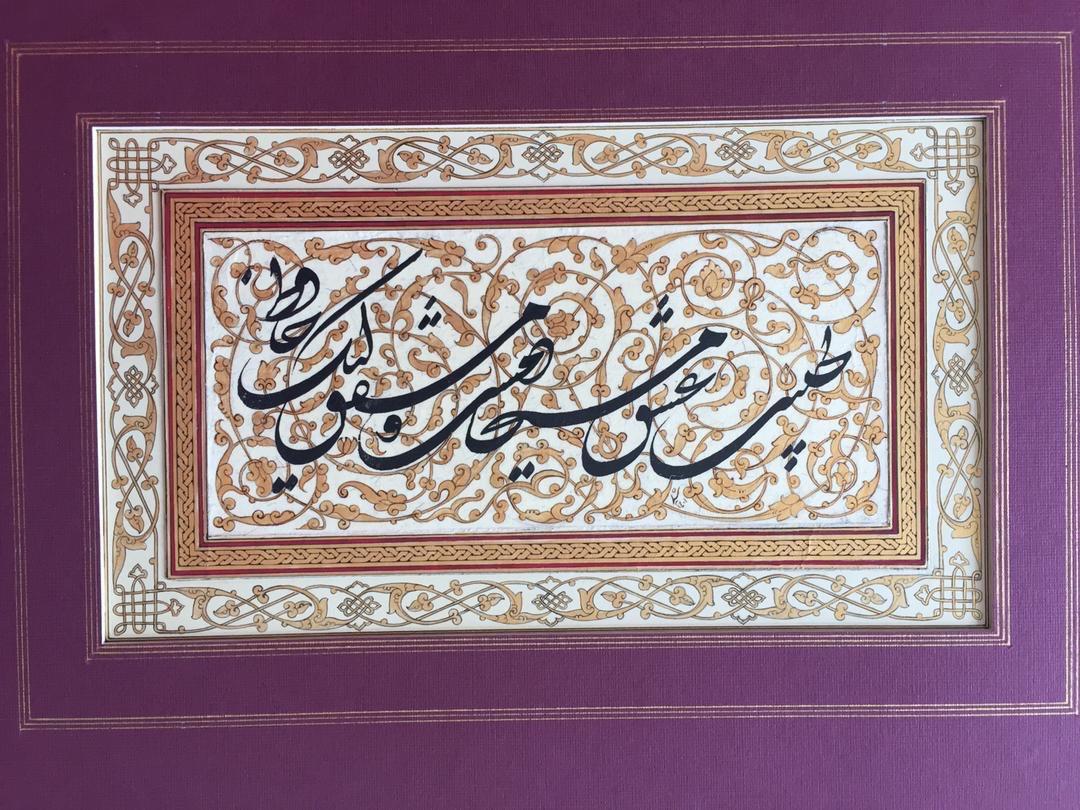 طبیب عشق مسیحا دمست و مشفق لیک